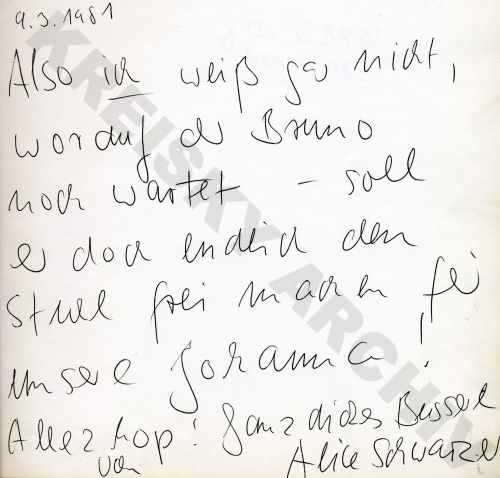 9.3.1981
Also ich weiß gar nicht,
worauf der Bruno
noch wartet – soll
er doch endlich den
Stuhl frei machen für
unsere Johanna!
Allez hop! Ganz dickes Busserl
von Alice Schwarzer
KREISKY ARCHIV